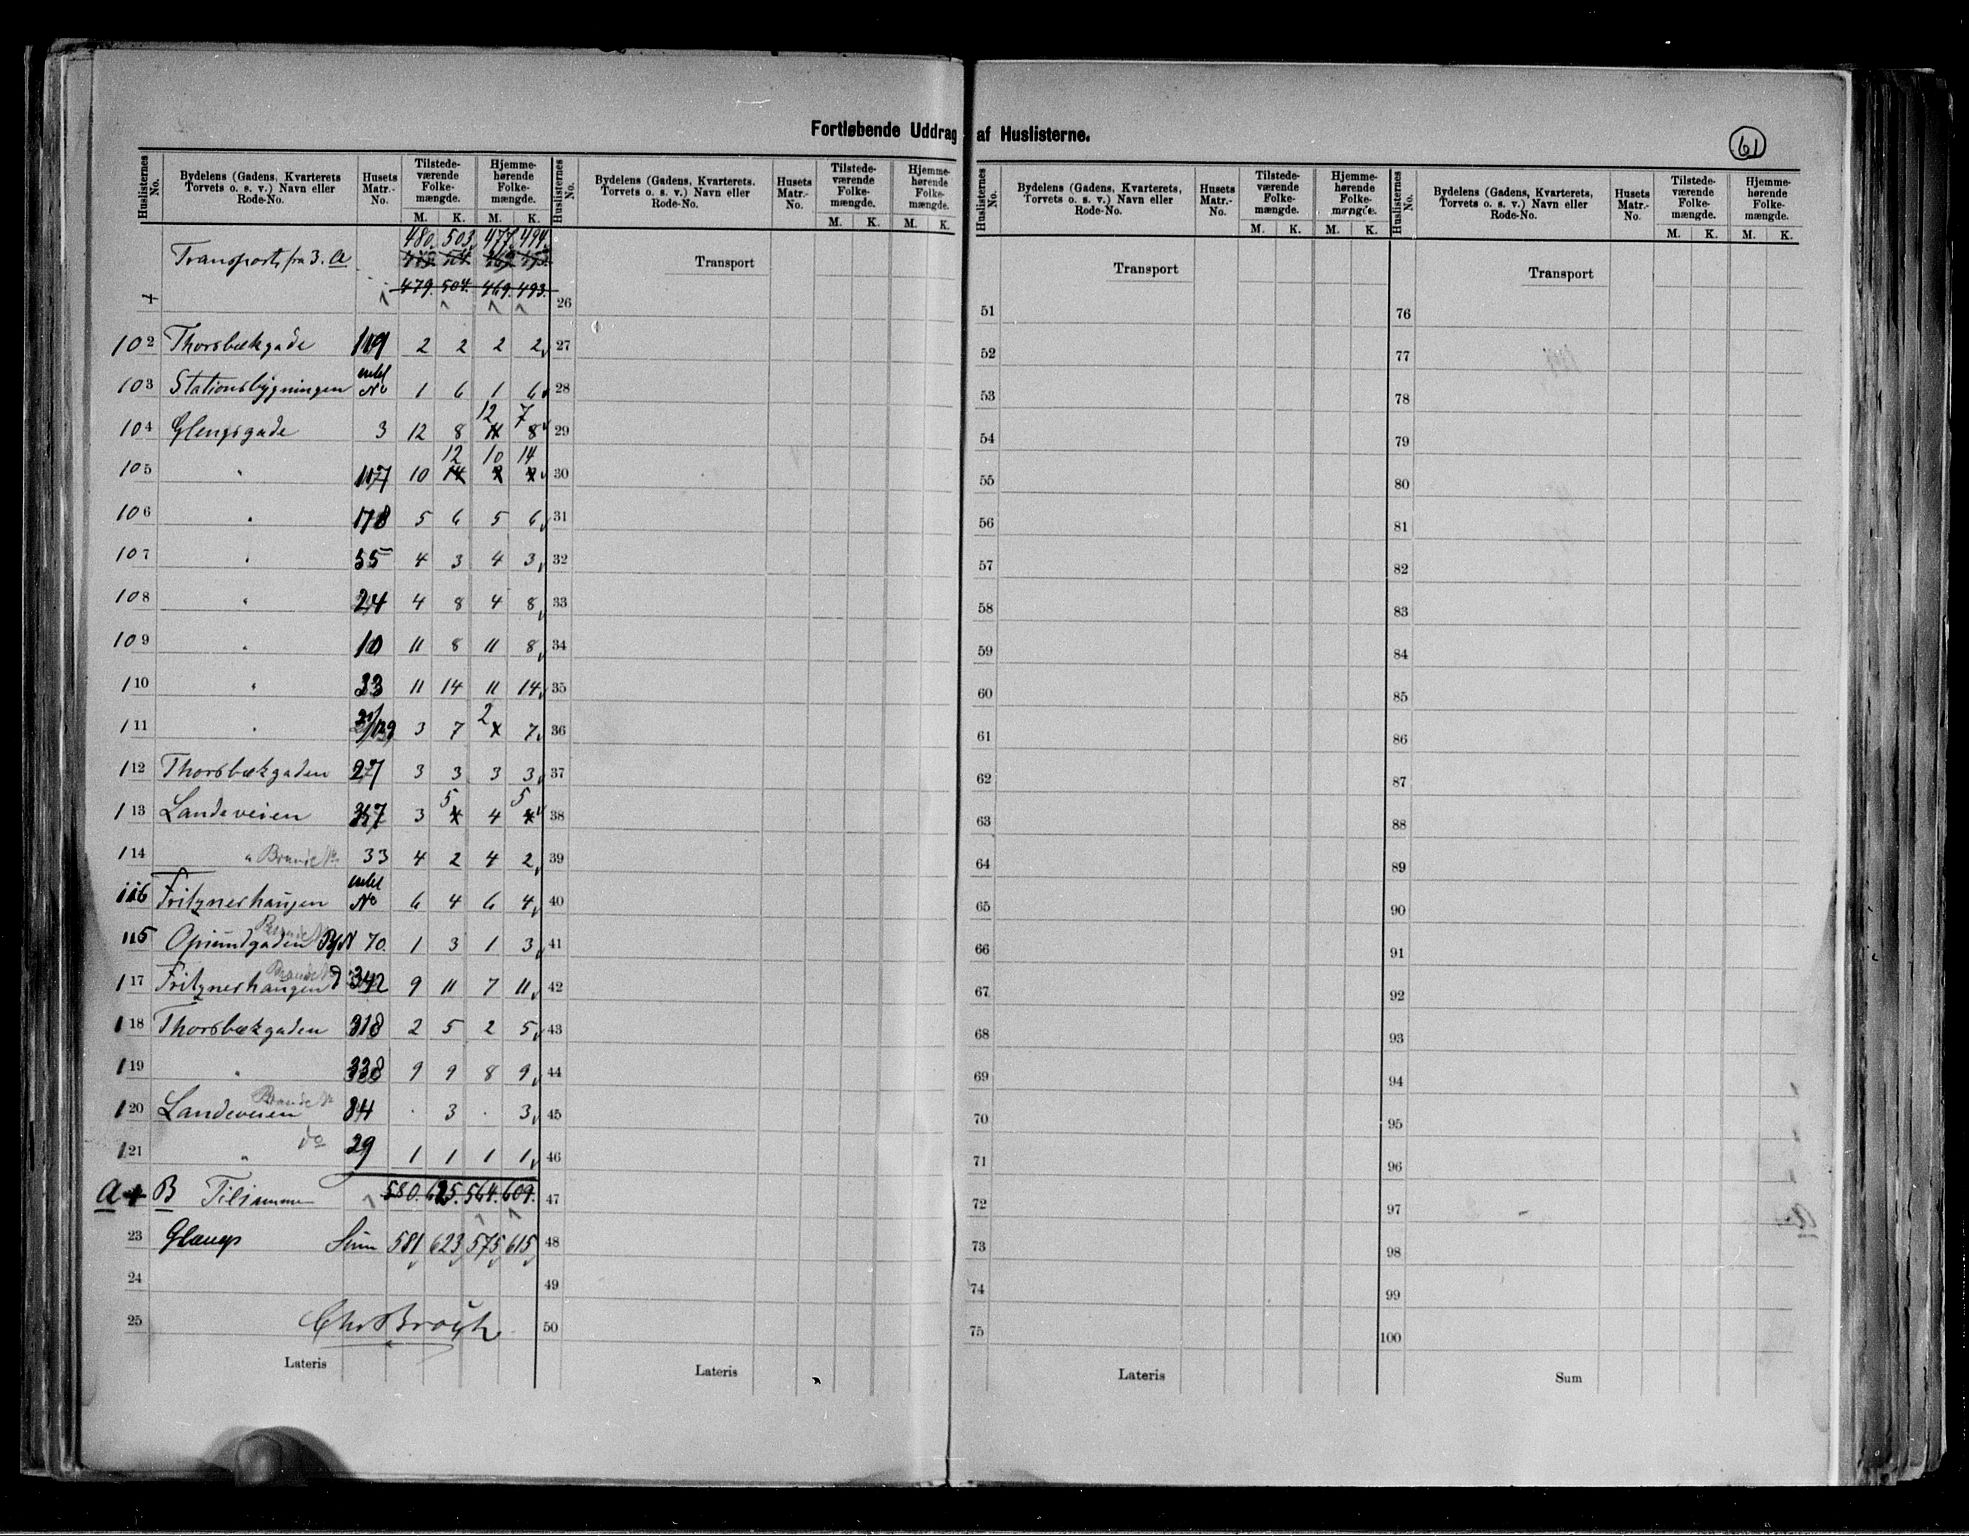 Fortløbende Uddrag af Huslisterne.
61
Huslisternes No. Bydelens (Gadens, Kvarterets Torvets o. s. v.) Navn eller Rode-No. Husets Matr.-No. Tilstede-værende Folke-mængde. Hjemme-hørende Folke-mængde.
M. K. M. K.
480 503 477 494
Transport fra 3. A
479. 504. 469. 493.
102 Thorsbækgade 119 2 2 2 2
103 Stationsbygningen No 1 6 1 6
12 7
104 Glengsgade 3 12 8 11 8
12 10 14
105 " 117 10 14
106 " 178 5 6 5 6
107 " 55 4 3 4 3
108 " 24 4 8 4 8
109 " 10 11 8 11 8
110 " 33 11 14 11 14
2
111 " 3 7 7
112 Thorsbækgaden 27 3 3 3 3
5 5
113 Landeveien 357 3 4 4 4
114 " Brande No 33 4 2 4 2
116 Fritznerhaugen No 6 4 6 4
115 Opsundgaden 70. 1 3 1 3
117 Fritznerhaugen Brande No 342 9 11 7 11
118 Thorsbækgaden 318 2 5 2 5
119 " 338 9 9 8 9
120 Landeveien Brande No 84 . 3 . 3
121 " do 29 1 1 1 1
A + B Tilsammen 580. 625. 564. 609.
23 Glengs Sum 581 623 575 615
24
25 Chr Broch
Lateris
Huslisternes No. Bydelens (Gadens, Kvarterets. Torvets o. s. v.) Navn eller Rode-No. Husets Matr.-No. Tilstede-værende Folke-mængde. Hjemme-hørende Folke-mængde.
M. K. M. K.
Transport
26
27
28
29
30
31
32
33
34
35
36
37
38
39
40
41
42
43
44
45
46
47
48
49
50
Lateris
Huslisternes No. Bydelens (Gadens, Kvarterets, Torvets o. s. v.) Navn eller Rode-No. Husets Matr.-No. Tilstede-værende Folke-mængde. Hjemme-hørende Folke-mængde.
M. K. M. K.
Transport
51
52
53
54
55
56
57
58
59
60
61
62
63
64
65
66
67
68
69
70
71
72
73
74
75
Lateris
Huslisternes No. Bydelens (Gadens, Kvarterets, Torvets o. s. v.) Navn eller Rode-No. Husets Matr.-No. Tilstede-værende Folke-mængde. Hjemme-hørende Folke-mængde.
M. K. M. K.
Transport
76
77
78
79
80
81
82
83
84
85
86
87
88
89
90
91
92
93
94
95
96
97
98
99
100
Sum